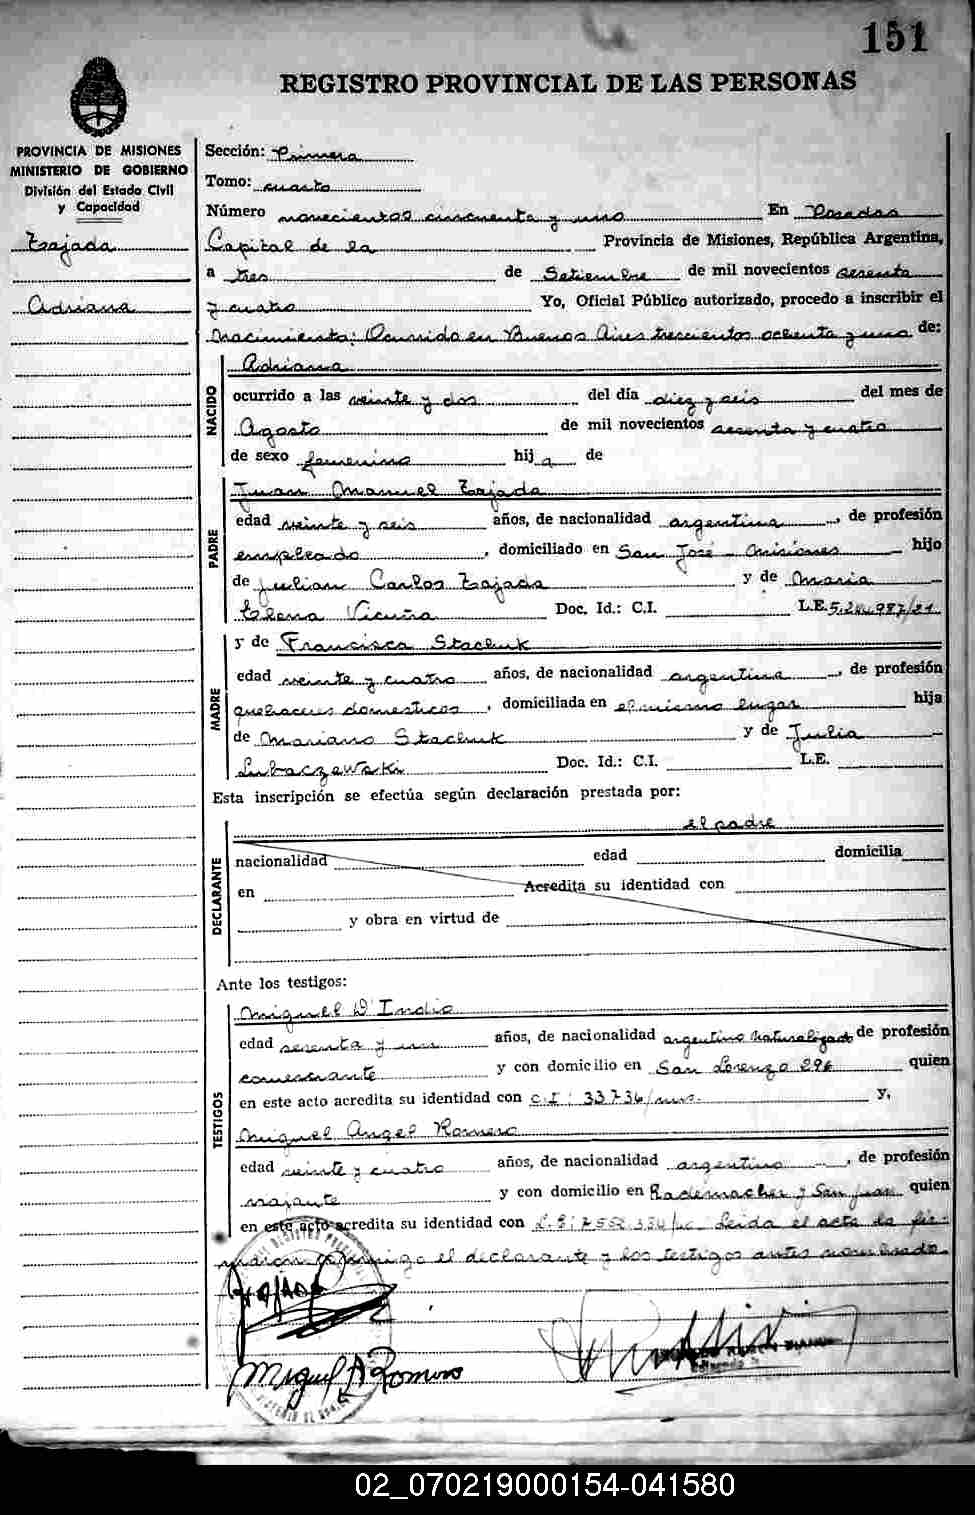 151
REGISTRO PROVINCIAL DE LAS PERSONAS
PROVINCIA DE MISIONES
MINISTERIO DE GOBIERNO
División del Estado Civil
y Capacidad
Tajada
Adriana
Sección: Primera
Tomo: cuarto
Número novecientos cincuenta y uno En Posadas
Capital de la Provincia de Misiones, República Argentina,
a tres de Setiembre de mil novecientos sesenta
y cuatro Yo, Oficial Público autorizado, procedo a inscribir el
Nacimiento: Ocurrido en Buenos Aires trescientos ochenta y uno de:
NACIDO
Adriana
ocurrido a las veinte y dos del día diez y seis del mes de
Agosto de mil novecientos sesenta y cuatro
de sexo femenino hija de
PADRE
Juan Manuel Tajada
edad veinte y seis años, de nacionalidad argentina, de profesión
empleado, domiciliado en San José - Misiones hijo
de Julian Carlos Tajada y de Maria
Elena Vicuña Doc. Id.: C.I. L.E.
MADRE
y de Francisca Stachuk
edad veinte y cuatro años, de nacionalidad argentina, de profesión
quehaceres domesticos, domiciliada en el mismo lugar hija
de Mariano Stachuk y de Julia
Lubaczewski Doc. Id.: C.I. L.E.
Esta inscripción se efectúa según declaración prestada por:
DECLARANTE
el padre
nacionalidad edad domicilia
en Acredita su identidad con
y obra en virtud de
Ante los testigos:
TESTIGOS
Miguel D'Indio
edad sesenta y un años, de nacionalidad argentino naturalizado de profesión
comerciante y con domicilio en San Lorenzo 296 quien
en este acto acredita su identidad con C.I: 33736/mis. y,
Miguel Angel Romero
edad veinte y cuatro años, de nacionalidad argentino, de profesión
viajante y con domicilio en Rademacher y San Juan quien
en este acto acredita su identidad con Leida el acta la fir-
maron conmigo el declarante y los testigos antes nombrado.
Miguel A Romero
02_070219000154-041580